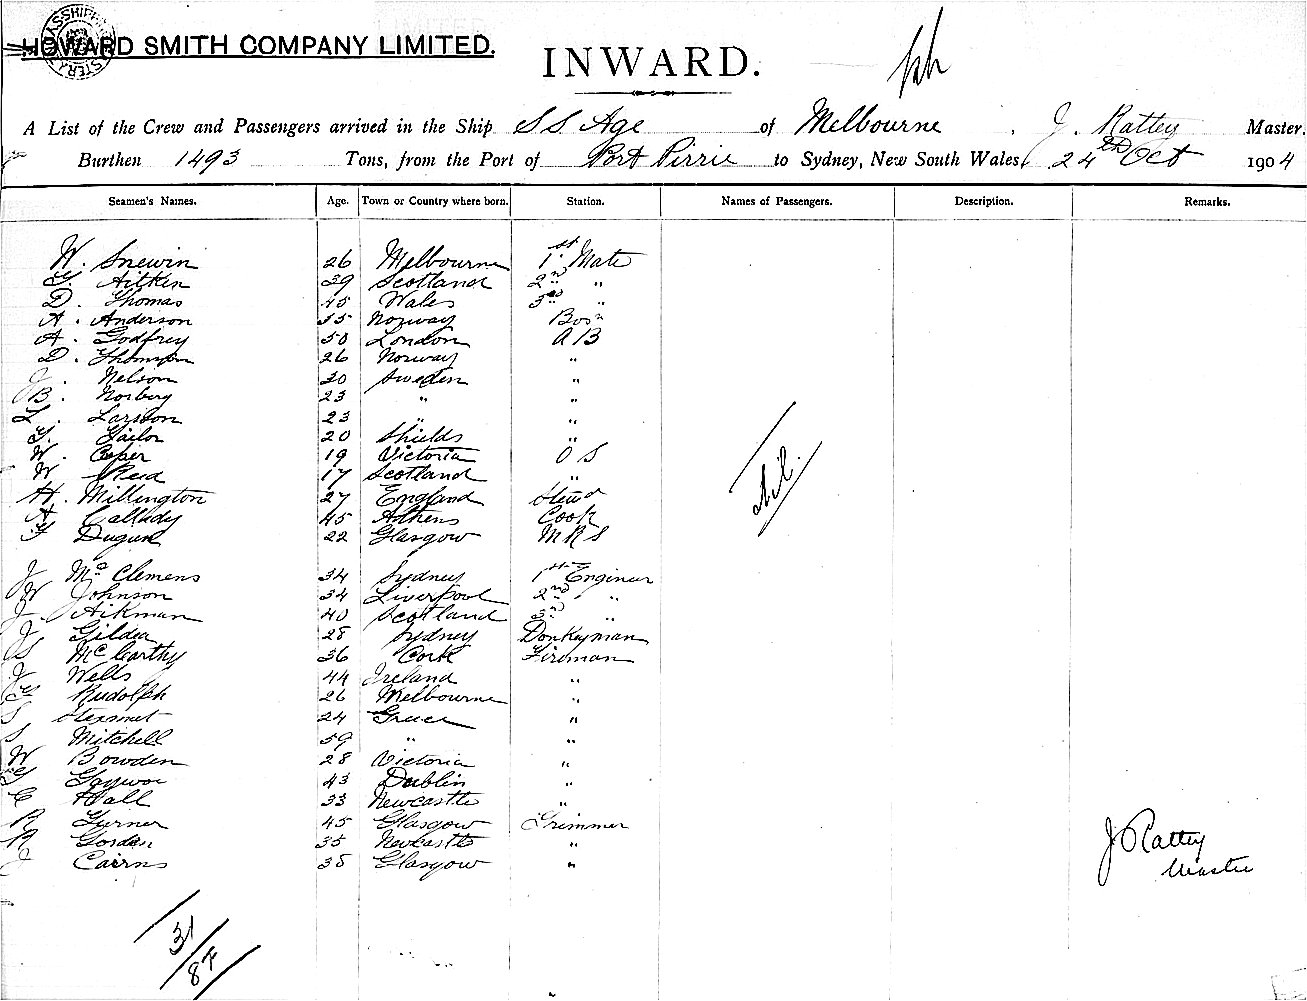 HOWARD SMITH COMPANY LIMITED.
INWARD.
A List of the Crew and Passengers arrived in the Ship SS Age of Melbourne, J. Rattey Master.
Burthen 1493 Tons, from the Port of Port Pirrie to Sydney, New South Wales, 24th Oct 1904
Seamen's Names. Age. Town or Country where born. Station. Names of Passengers. Description. Remarks.
W. Snewin 26 Melbourne 1st Mate
G. Aitken 29 Scotland 2nd "
D. Thomas 45 Wales 3rd "
A. Anderson 35 Norway Bosn
A. Godfrey 50 London AB
D. Thomson 26 Norway "
J. Nelson 30 Sweden "
B. Norberg 23 " "
L. Larsson 23 " "
T. Tailor 20 Shields "
W. Cooper 19 Victoria OS
W Reid 17 Scotland "
H. Millington 27 England Stewd
A Callady 45 Athens Cook
22 Glasgow MRS
Nil.
J McClemens 34 Sydney 1st Engineer
W Johnson 34 Liverpool 2nd "
J Aikman 40 Scotland 3rd "
J. Gildea 28 Sydney Donkeyman
S McCarthy 36 Cork Fireman
J Wells 44 Ireland "
Rudolph 26 Melbourne "
S 24 Greece "
S Mitchell 39 " "
W Bowden 28 Victoria "
43 Dublin "
C Hall 33 Newcastle "
R Turner 45 Glasgow Trimmer
R Gordon 35 Newcastle "
J Cairns 35 Glasgow "
J Rattey
Master
31